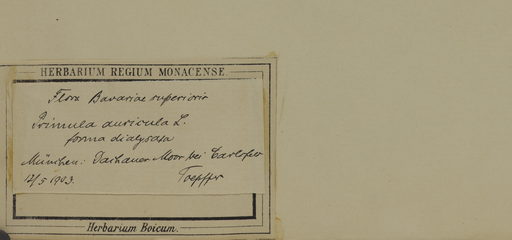 HERBARIUM REGIUM MONACENSE.
Flora Bavariae superioris
Primula auricula L.
forma dialysata
München: Dachauer Moor bei Carlsfeld
12/5 1903. Toepffer
Herbarium Boicum.